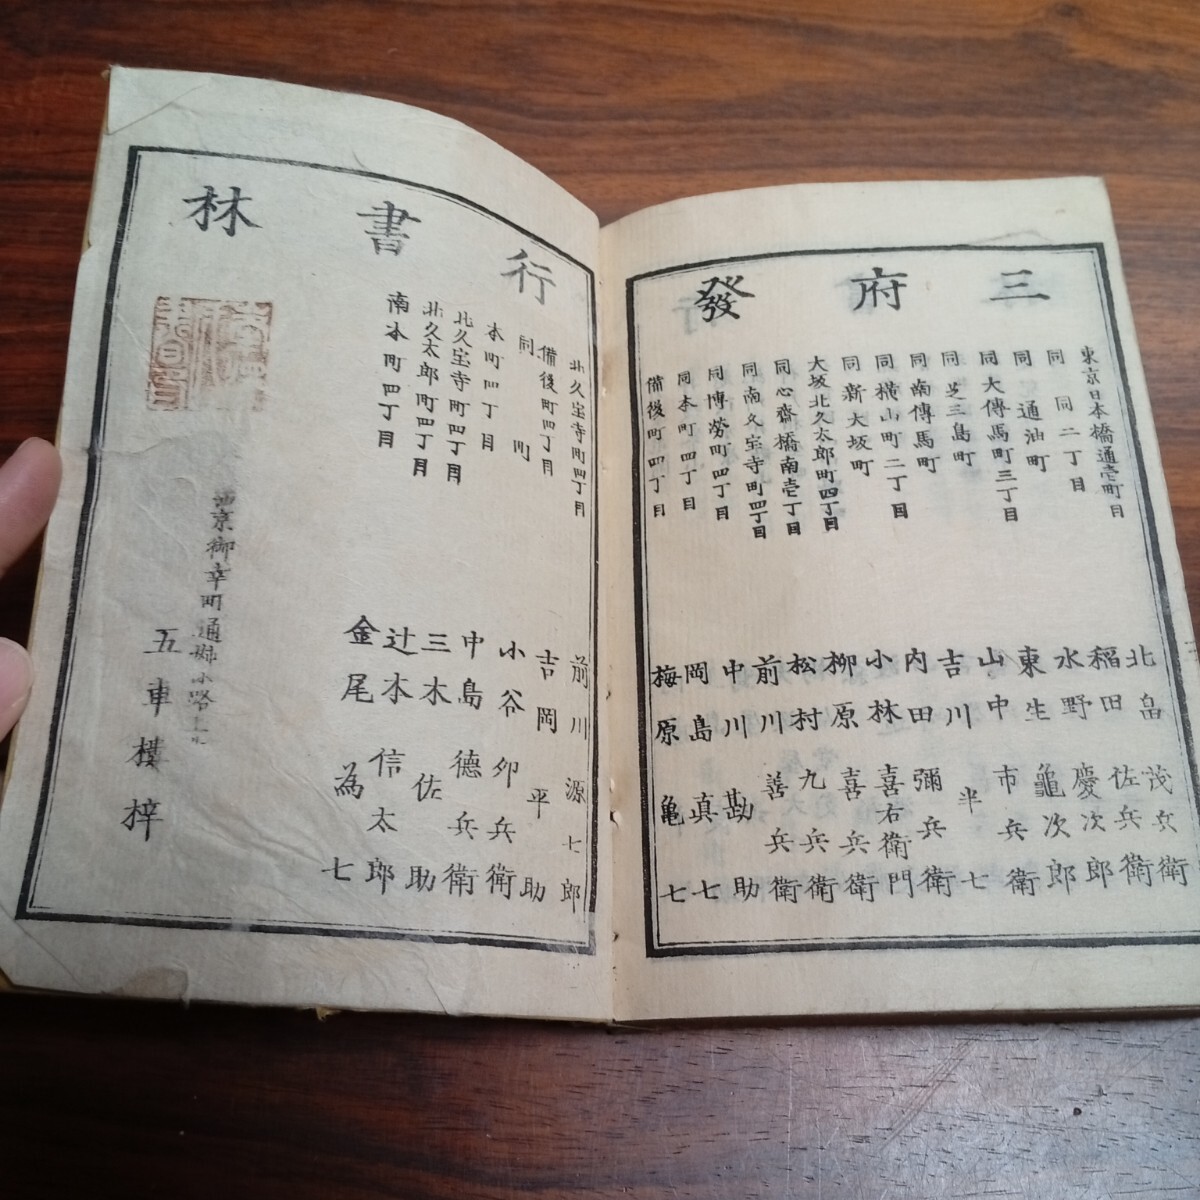 三府發行書林
東京日本橋通壱町目 北畠茂兵衛
同 同 二丁目 稲田佐兵衛
同 通油町 水野慶次郎
同 大傳馬町三丁目 東生龜次郎
同 芝三島町 山中市兵衛
同 南傳馬町 吉川半七
同 横山町二丁目 内田彌兵衛
同 新大坂町 小林喜右衛門
大坂北久太郎町四丁目 柳原喜兵衛
同 心齋橋南壱丁目 松村九兵衛
同 南久宝寺町四丁目 前川善兵衛
同 博勞町四丁目 中川勘助
同 本町四丁目 岡島真七
備後町四丁目 梅原亀七
北久宝寺町四丁目 前川源七郎
備後町四丁目 吉岡平助
同 町 小谷卯兵衛
本町四丁目 中島德兵衛
北久宝寺町四丁目 三木佐助
北久太郎町四丁目 辻本信太郎
南本町四丁目 金尾為七
京御幸町通姉小路上ル
五車樓梓